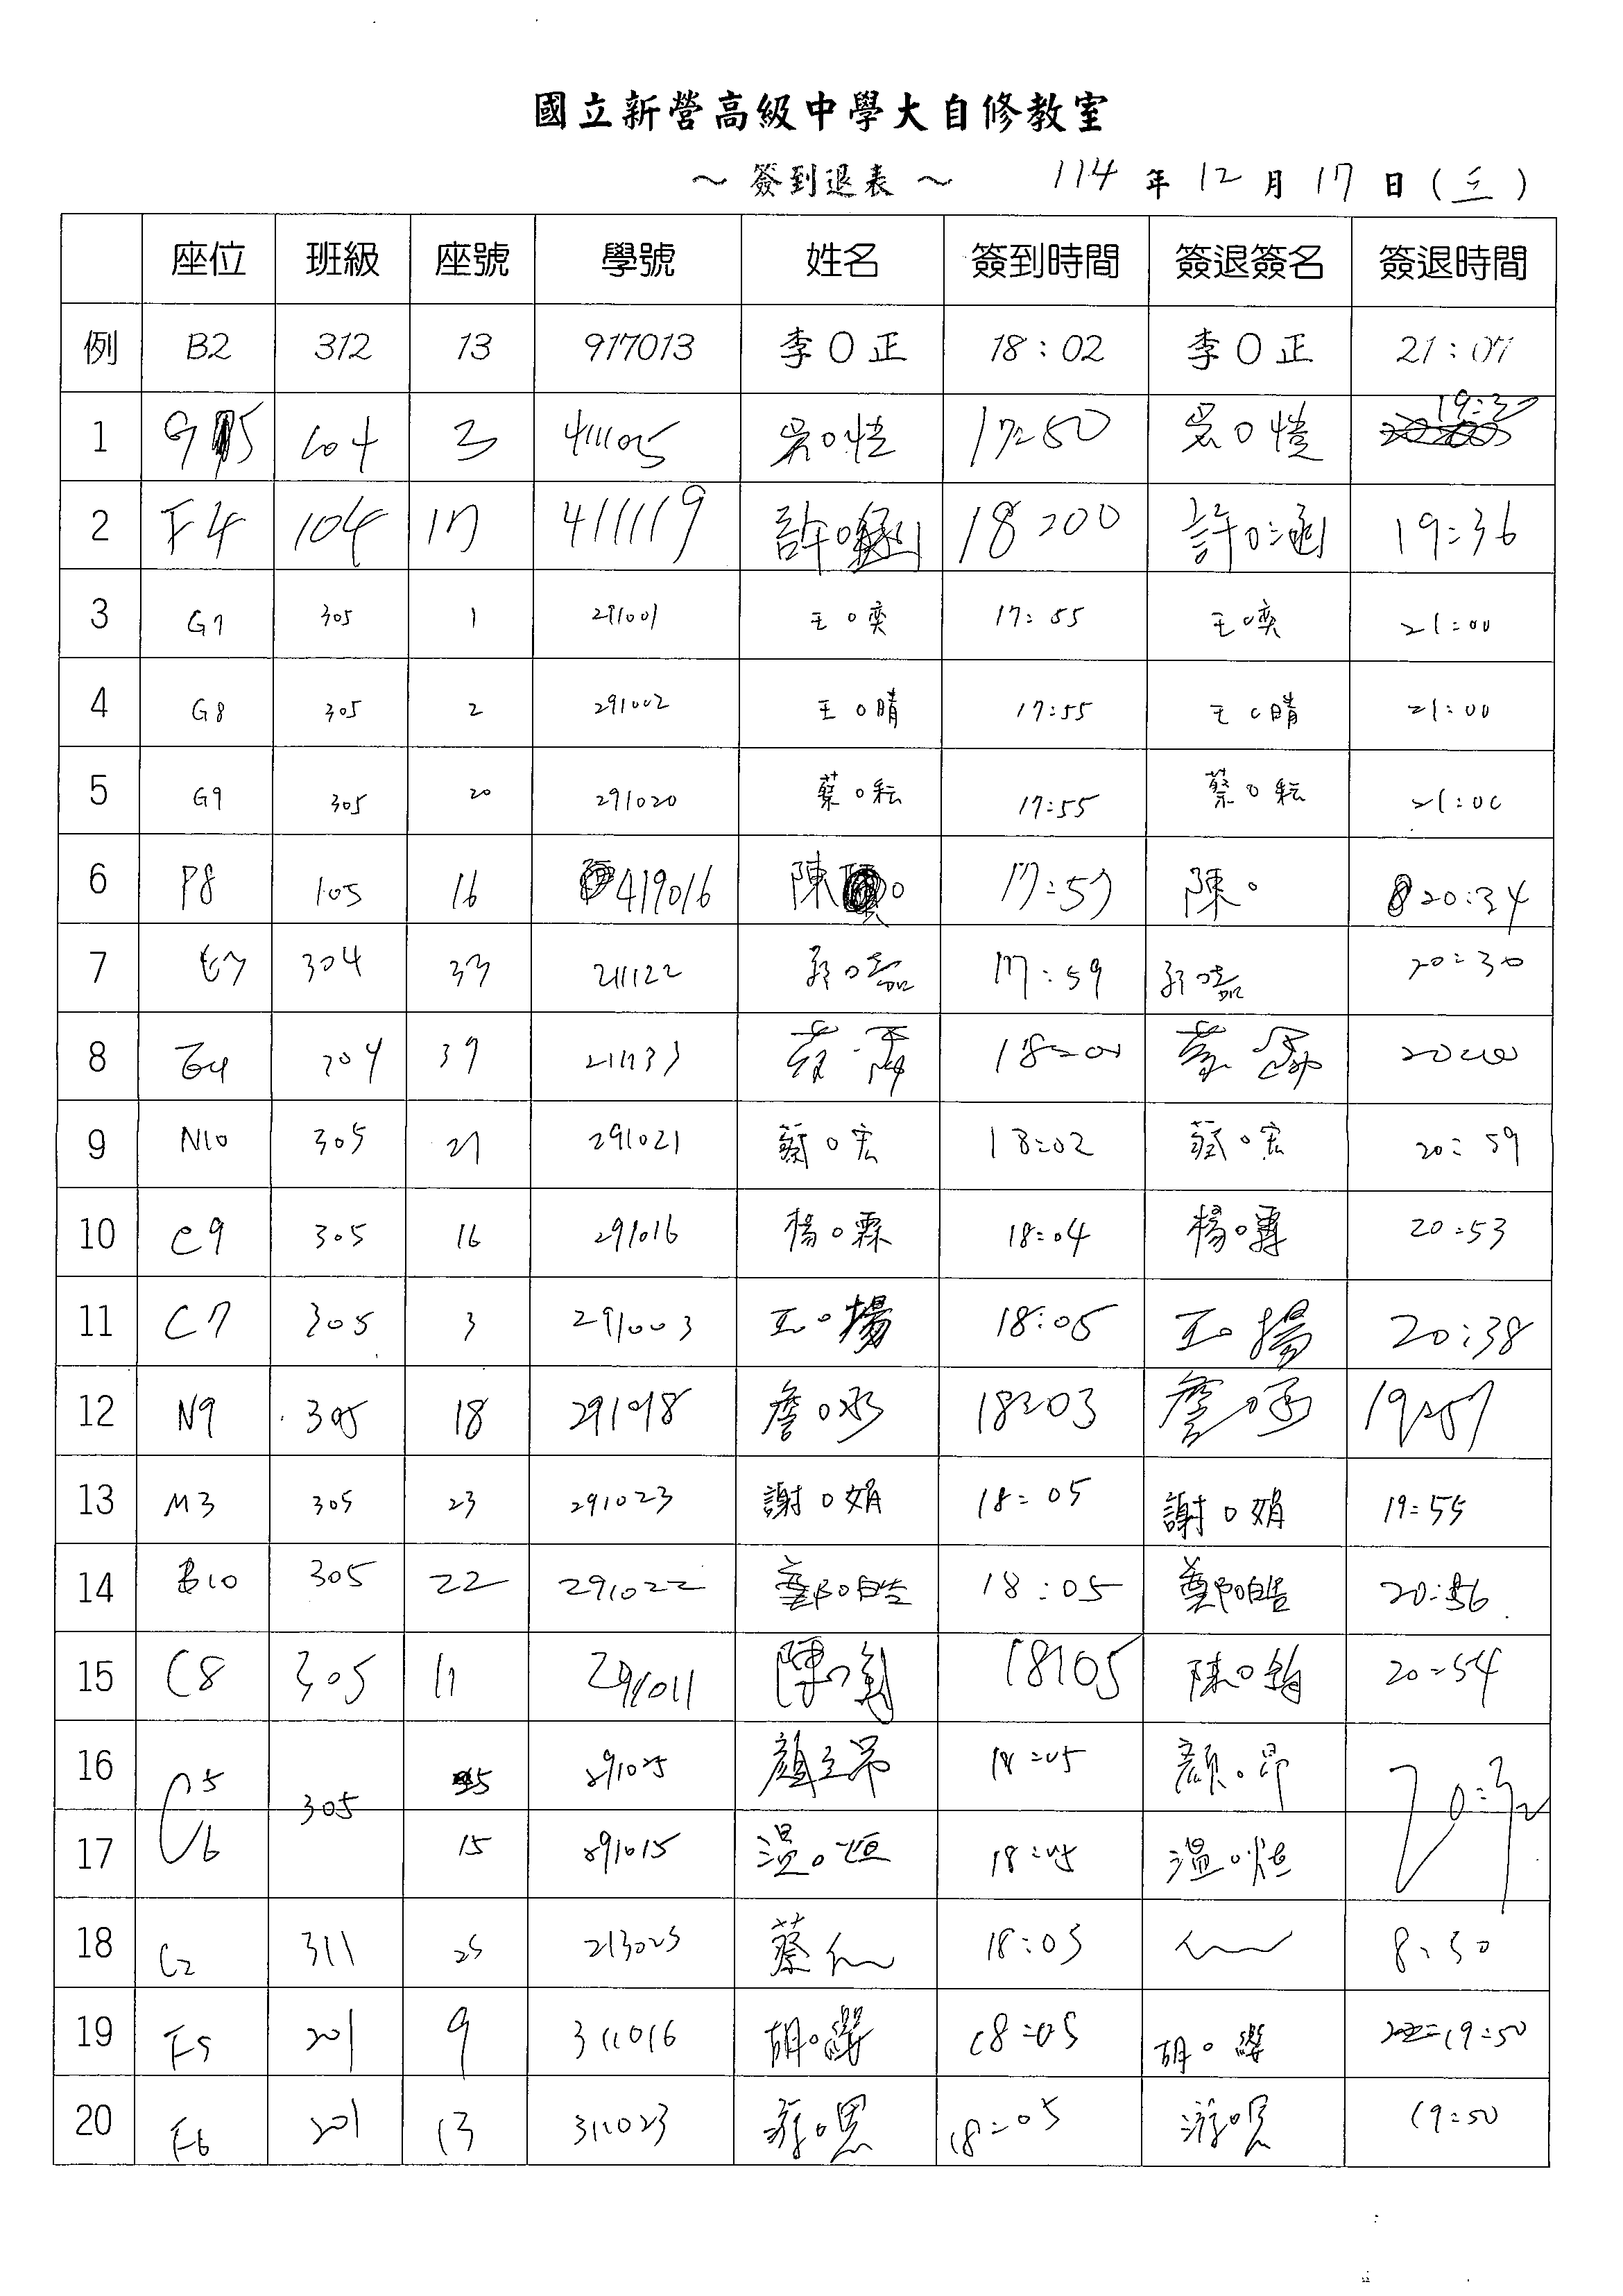 國立新營高級中學大自修教室
～ 簽到退表 ～ 114 年 12 月 17 日 (三)
座位 班級 座號 學號 姓名 簽到時間 簽退簽名 簽退時間
例 B2 312 13 917013 李O正 18:02 李O正 21:07
1 G5 104 3 411105 吳O愷 17:50 吳O愷 19:30
2 F4 104 17 411119 許O涵 18:00 許O涵 19:36
3 G7 305 1 291001 王O奕 17:55 王O奕 21:00
4 G8 305 2 291002 王O晴 17:55 王O晴 21:00
5 G9 305 20 291020 蔡O耘 17:55 蔡O耘 21:00
6 P8 105 16 419016 陳O 17:57 陳O 20:34
7 E7 304 33 211122 17:59 20:30
8 E4 304 39 蔡 18:01 蔡 20:00
9 N10 305 21 291021 蔡O宏 18:02 蔡O宏 20:59
10 C9 305 16 291016 楊O霖 18:04 楊O霖 20:53
11 C7 305 3 291003 王O揚 18:05 王O揚 20:38
12 N9 305 18 291018 詹O承 18:03 詹O承 19:57
13 M3 305 23 291023 謝O娟 18:05 謝O娟 19:55
14 B10 305 22 291022 鄭O皓 18:05 鄭O皓 20:56
15 C8 305 11 291011 陳O 18:05 陳O 20:54
16 C5 305 25 291025 顏O昂 18:05 顏O昂 20:32
17 C6 15 291015 溫O恒 18:05 溫O恒
18 C2 311 25 213025 蔡 18:05 8:30
19 F5 201 9 311016 胡O 18:05 胡O 19:50
20 F6 201 13 311023 游O恩 18:05 游O恩 19:50